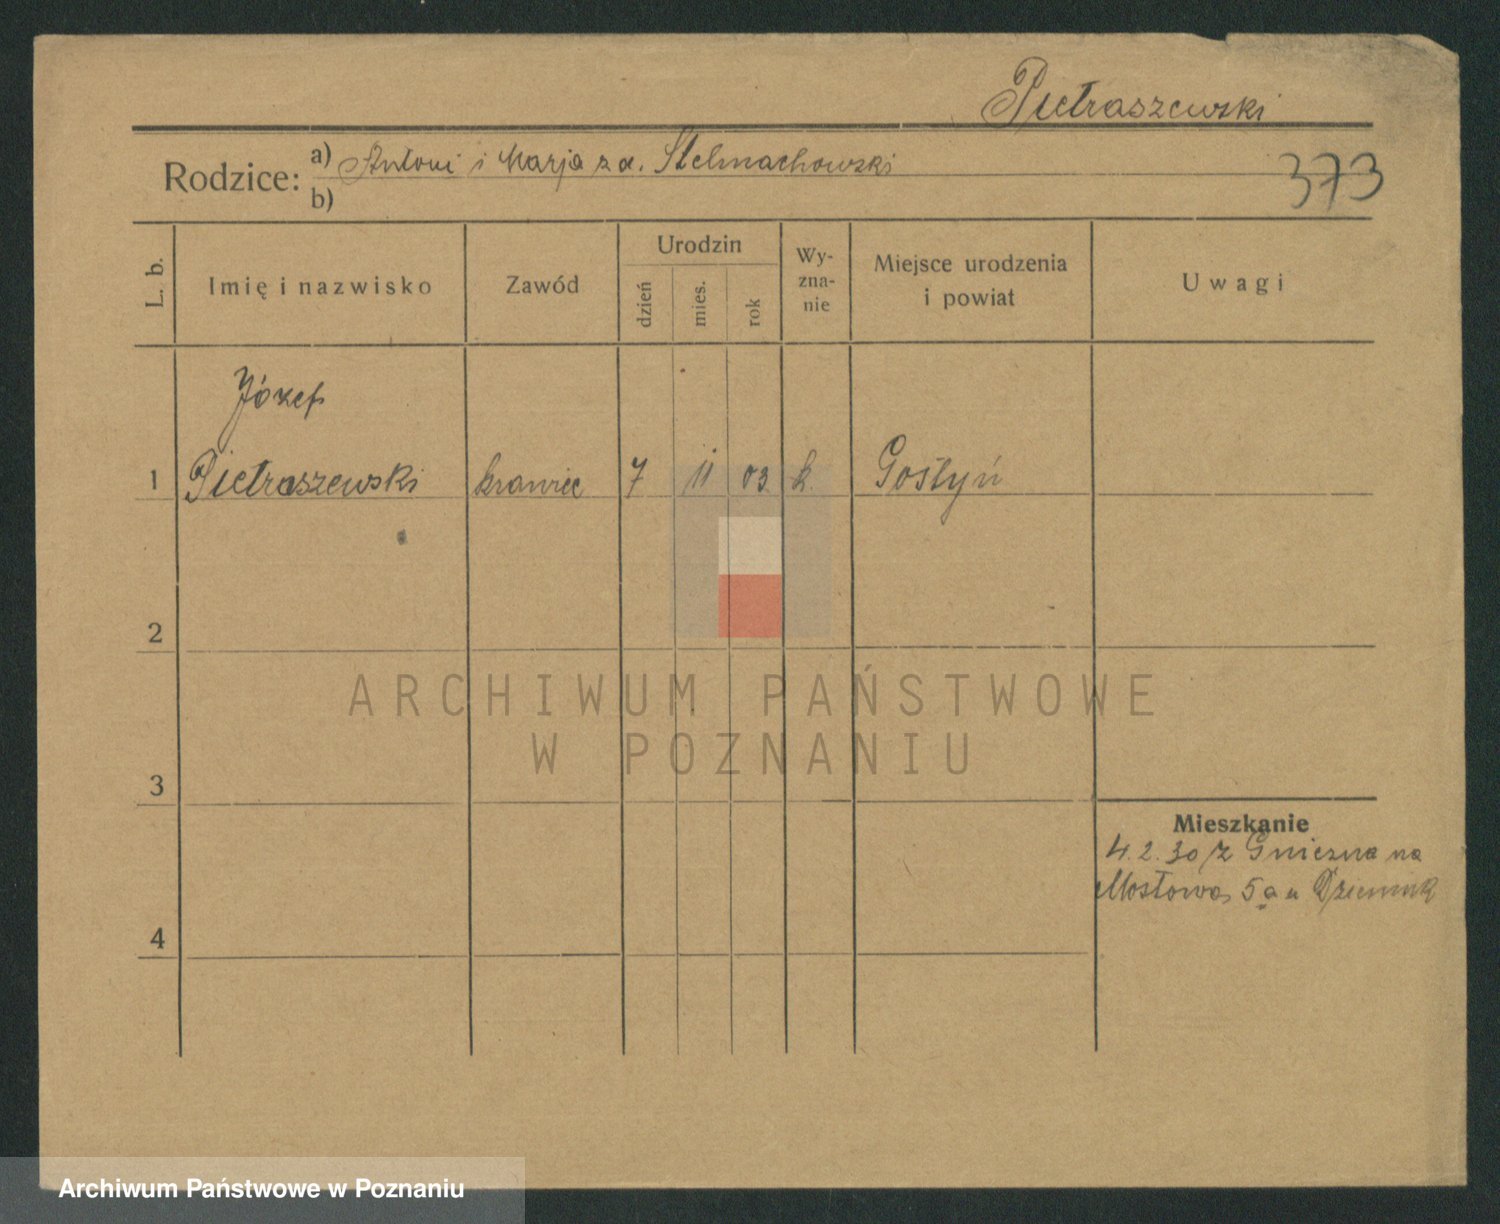 Pietraszewski
Rodzice: a) Antoni i Marja z d. Stelmachowski
b)
373
L. b.
Imię i nazwisko
Zawód
Urodzin
dzień
mies.
rok
Wy-
zna-
nie
Miejsce urodzenia
i powiat
Uwagi
Józef
1 Pietraszewski krawiec 7 11 03 k. Gostyń
2
3
4
Mieszkanie
4.2.30 z Gniezna na
Mostowa 5a u
ARCHIWUM PAŃSTWOWE
W POZNANIU
Archiwum Państwowe w Poznaniu